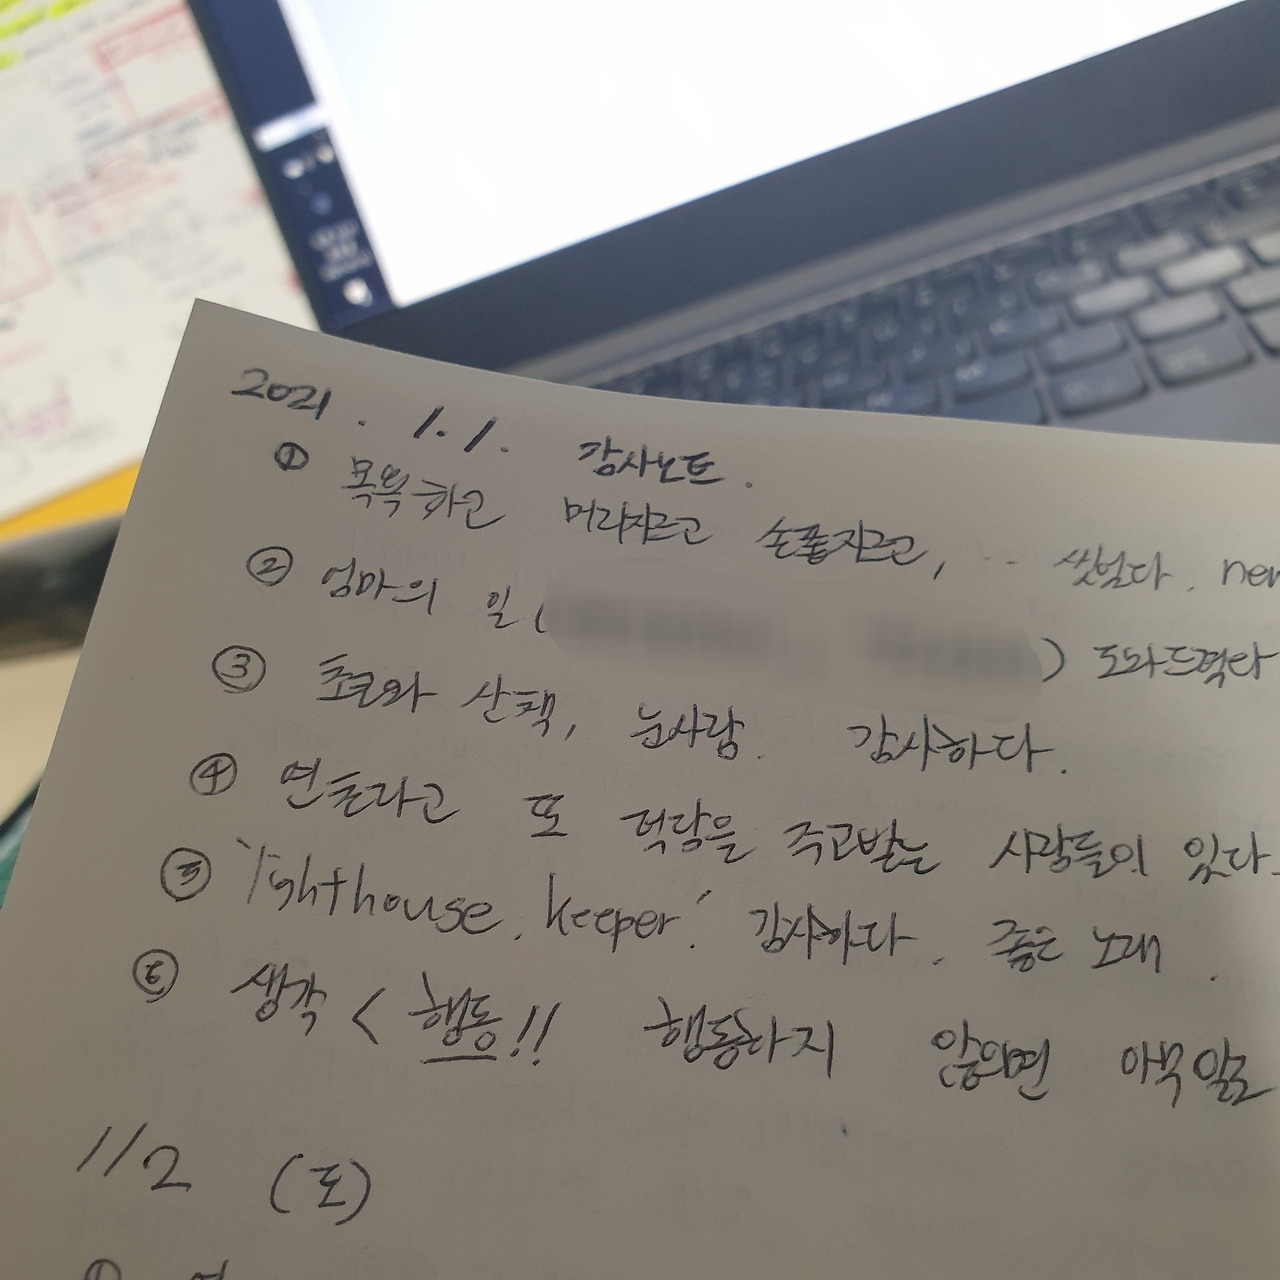 2021. 1.1. 감사노트.
① 목욕하고 머리자르고 손톱자르고, ... 씻었다. new
② 엄마의 일 ( ) 도와드렸다
③ 초코와 산책, 눈사람. 감사하다.
④ 연초라고 또 덕담을 주고받는 사람들이 있다.
⑤ 'lighthouse keeper' 감사하다. 좋은 노래.
⑥ 생각 < 행동!! 행동하지 않으면 아무일도
1/2 (토)
①